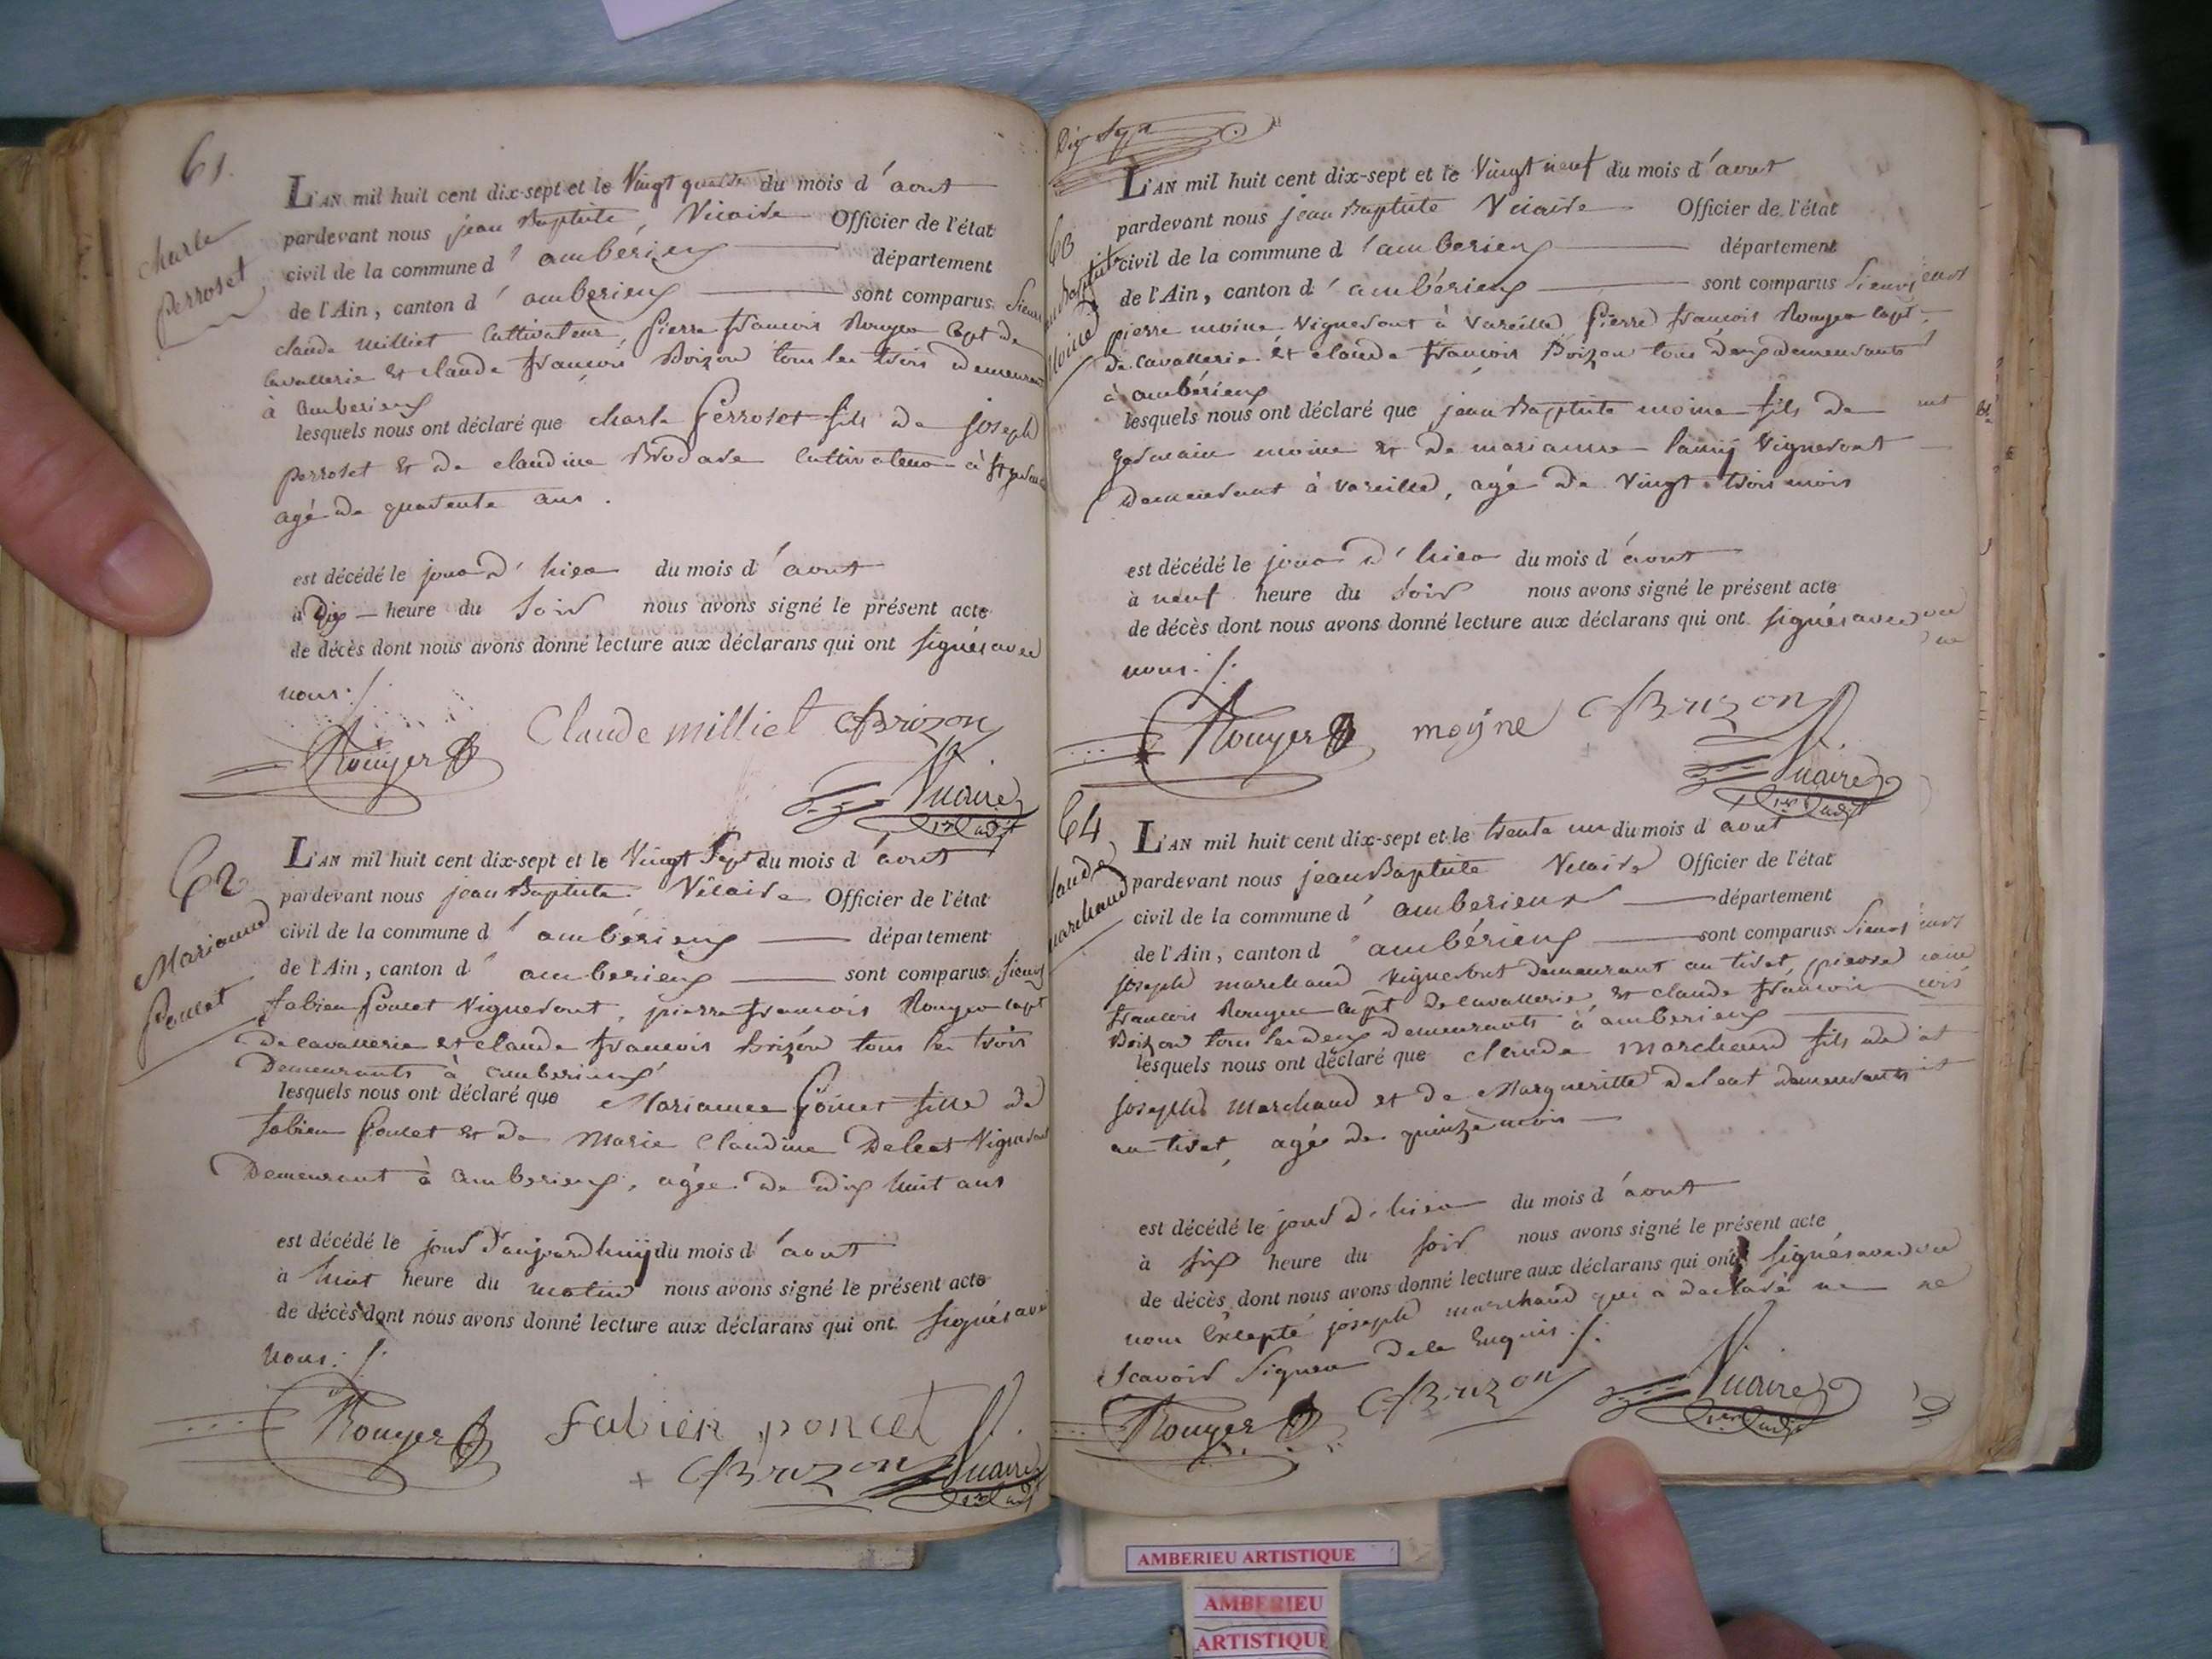 61.
charle
perroset
L'AN mil huit cent dix-sept et le Vingt quatre du mois d'aout
pardevant nous jean Baptiste Vicaire Officier de l'état
civil de la commune d'ambérieux département
de l'Ain, canton d'ambérieux sont comparus Sieurs
claude Milliet Cultivateur, pierre francois Rouyer Capt de
Cavallerie et claude francois Brizon tous les trois demeurant
à amberieux
lesquels nous ont déclaré que charle perroset fils de joseph
perroset et de claudine Cultivateur à
agé de quarente ans.
est décédé le jour d'hier du mois d'aout
à Dix heure du Soir nous avons signé le présent acte
de décès dont nous avons donné lecture aux déclarans qui ont signés avec
nous ./.
Rouyer Claude milliet CfBrizon
Vicaire
62
Marianne
Poncet
L'AN mil huit cent dix-sept et le Vingt Sept du mois d'aout
pardevant nous jean Baptiste Vicaire Officier de l'état
civil de la commune d'ambérieux département
de l'Ain, canton d'amberieux sont comparus Sieurs
fabien poncet Vigneront, pierre francois Rouyer capt
de cavallerie et claude francois Brizon tous les trois
Demeurants à amberieux
lesquels nous ont déclaré que Marianne poncet fille de
fabien poncet et de Marie Claudine Vigneront
Demeurant à amberieux, agée de dix huit ans
est décédé le jour d'aujourdhuij du mois d'aout
à huit heure du matin nous avons signé le présent acte
de décès dont nous avons donné lecture aux déclarans qui ont signés avec
nous ./.
Rouyer fabien poncet
CfBrizon Vicaire
63
Baptiste
Moine
L'AN mil huit cent dix-sept et le Vingt neuf du mois d'aout
pardevant nous jean Baptiste Vicaire Officier de l'état
civil de la commune d'amberieux département
de l'Ain, canton d'ambérieux sont comparus Sieurs
pierre moine Vigneront à Vareille, pierre francois Rouyer Capt
de cavallerie et claude francois Brizon tous deux demeurants
à ambérieux
lesquels nous ont déclaré que jean Baptiste moine fils de
germain moine et de marianne Vigneront
Demeurant à Vareille, agé de Vingt trois mois
est décédé le jour d'hier du mois d'aout
à neuf heure du Soir nous avons signé le présent acte
de décès dont nous avons donné lecture aux déclarans qui ont signés avec
nous ./.
Rouyer moyne CfBrizon
Vicaire
64
Claude
Marchand
L'AN mil huit cent dix-sept et le trente un du mois d'aout
pardevant nous jean Baptiste Vicaire Officier de l'état
civil de la commune d'amberieux département
de l'Ain, canton d'ambérieux sont comparus Sieurs
joseph marchand Vigneront demeurant au tiret, pierre
francois Rouyer capt de cavallerie, et claude francois
Brizon tous les deux demeurants à amberieux
lesquels nous ont déclaré que claude marchand fils de
joseph Marchand et de Margueritte demeurants
au tiret, agé de quinze mois
est décédé le jour d'hier du mois d'aout
à six heure du soir nous avons signé le présent acte
de décès dont nous avons donné lecture aux déclarans qui ont signés avec
nous Excepté joseph marchand qui a declaré ne
scavoir signer de ce Enquis ./.
Rouyer CfBrizon Vicaire
AMBERIEU ARTISTIQUE
AMBERIEU
ARTISTIQUE